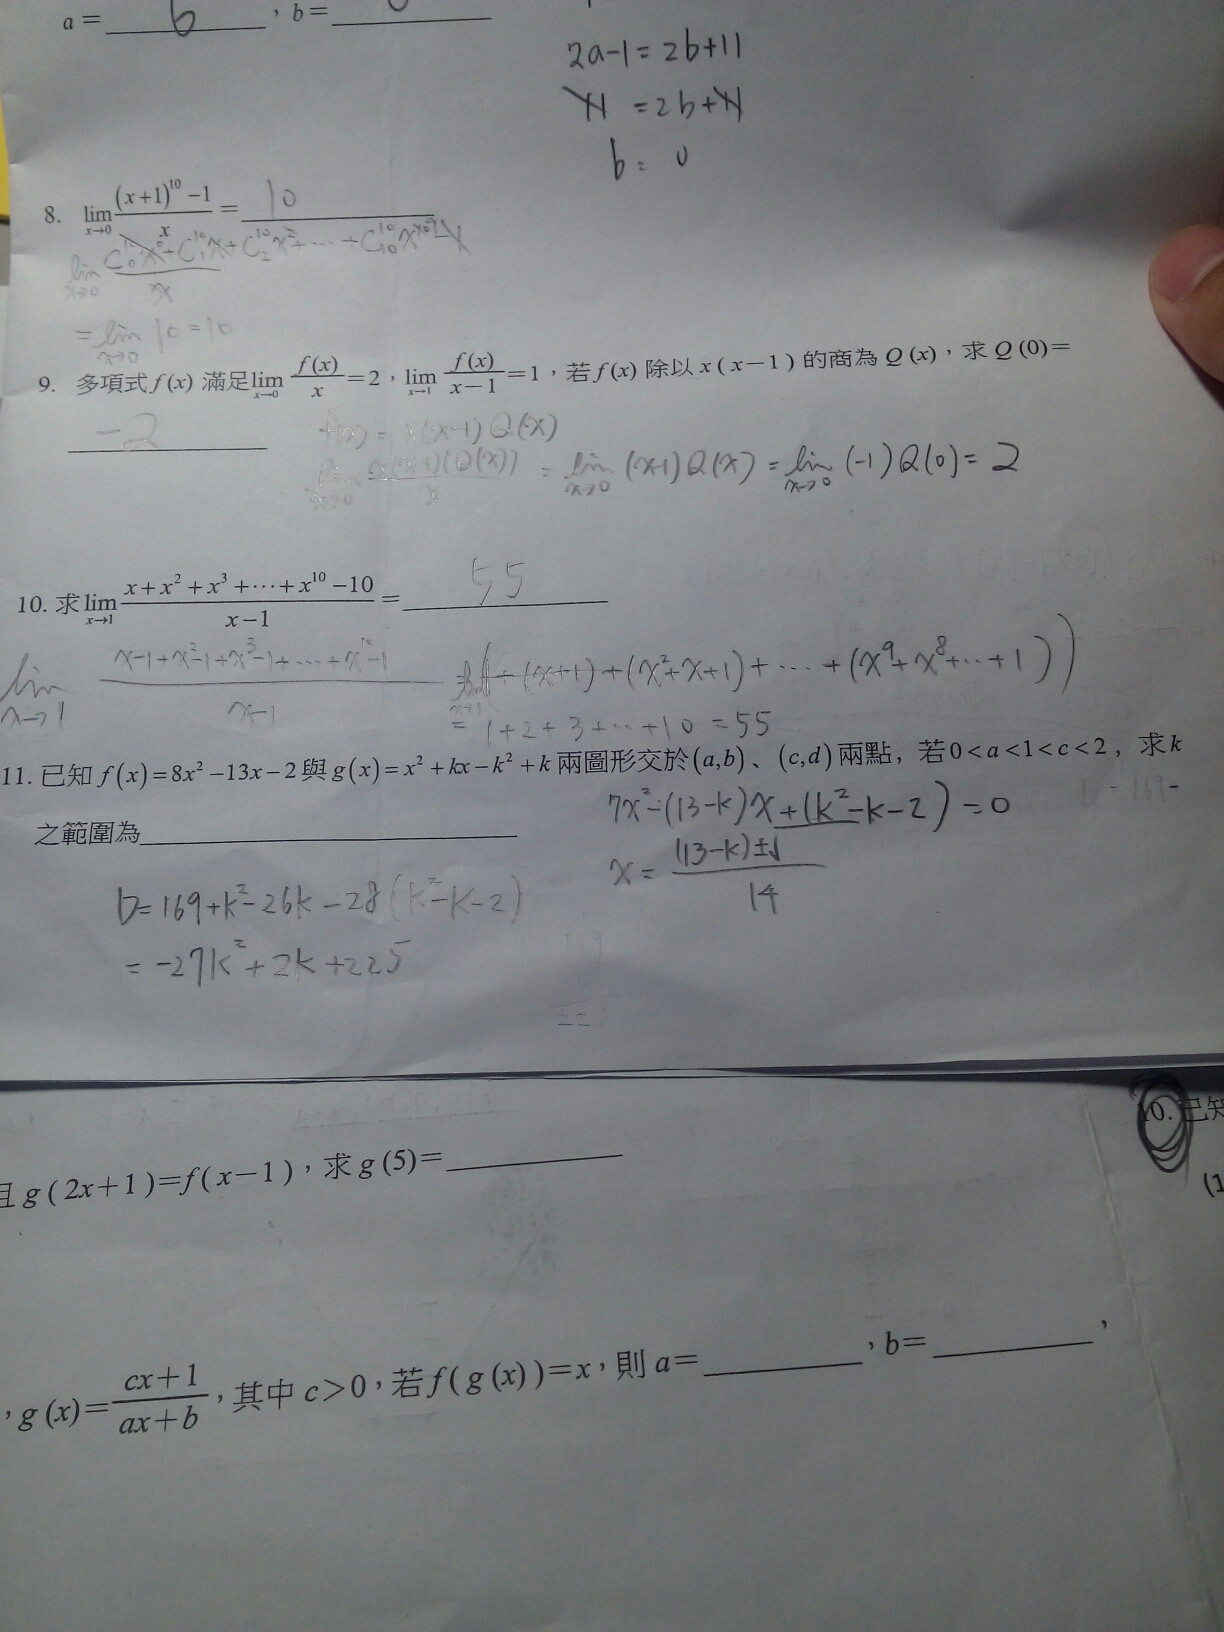 a = 6 , b =
2a-1 = 2b+11
11 = 2b+11
b = 0
8. lim x→0 ((x+1)^10 −1)/x = 10
lim x→0 (C^10_0 x^0 + C^10_1 x + C^10_2 x^2 + … + C^10_10 x^10 - 1)/x
= lim x→0 10 = 10
9. 多項式 f(x) 滿足 lim x→0 f(x)/x = 2，lim x→1 f(x)/(x−1) = 1，若 f(x) 除以 x(x−1) 的商為 Q(x)，求 Q(0)=
-2
f(x) = x(x-1)Q(x)
lim x→0 x(x-1)(Q(x))/x = lim x→0 (x-1)Q(x) = lim x→0 (-1)Q(0) = 2
10. 求 lim x→1 (x+x^2+x^3+⋯+x^10−10)/(x−1) = 55
lim x→1 (x-1+x^2-1+x^3-1+…+x^10-1)/(x-1)
lim x→1 (1+(x+1)+(x^2+x+1)+…+(x^9+x^8+…+1))
= 1+2+3+…+10 = 55
11. 已知 f(x)=8x^2−13x−2 與 g(x)=x^2+kx−k^2+k 兩圖形交於 (a,b)、(c,d) 兩點，若 0<a<1<c<2，求 k
之範圍為
7x^2-(13-k)x+(k^2-k-2)=0
x = ((13-k)±√)/14
D=169+k^2-26k-28(k^2-k-2)
= -27k^2+2k+225
且 g(2x+1)=f(x−1)，求 g(5)=
10. 已知
(1
，g(x)=(cx+1)/(ax+b)，其中 c>0，若 f(g(x))=x，則 a= ，b= ，